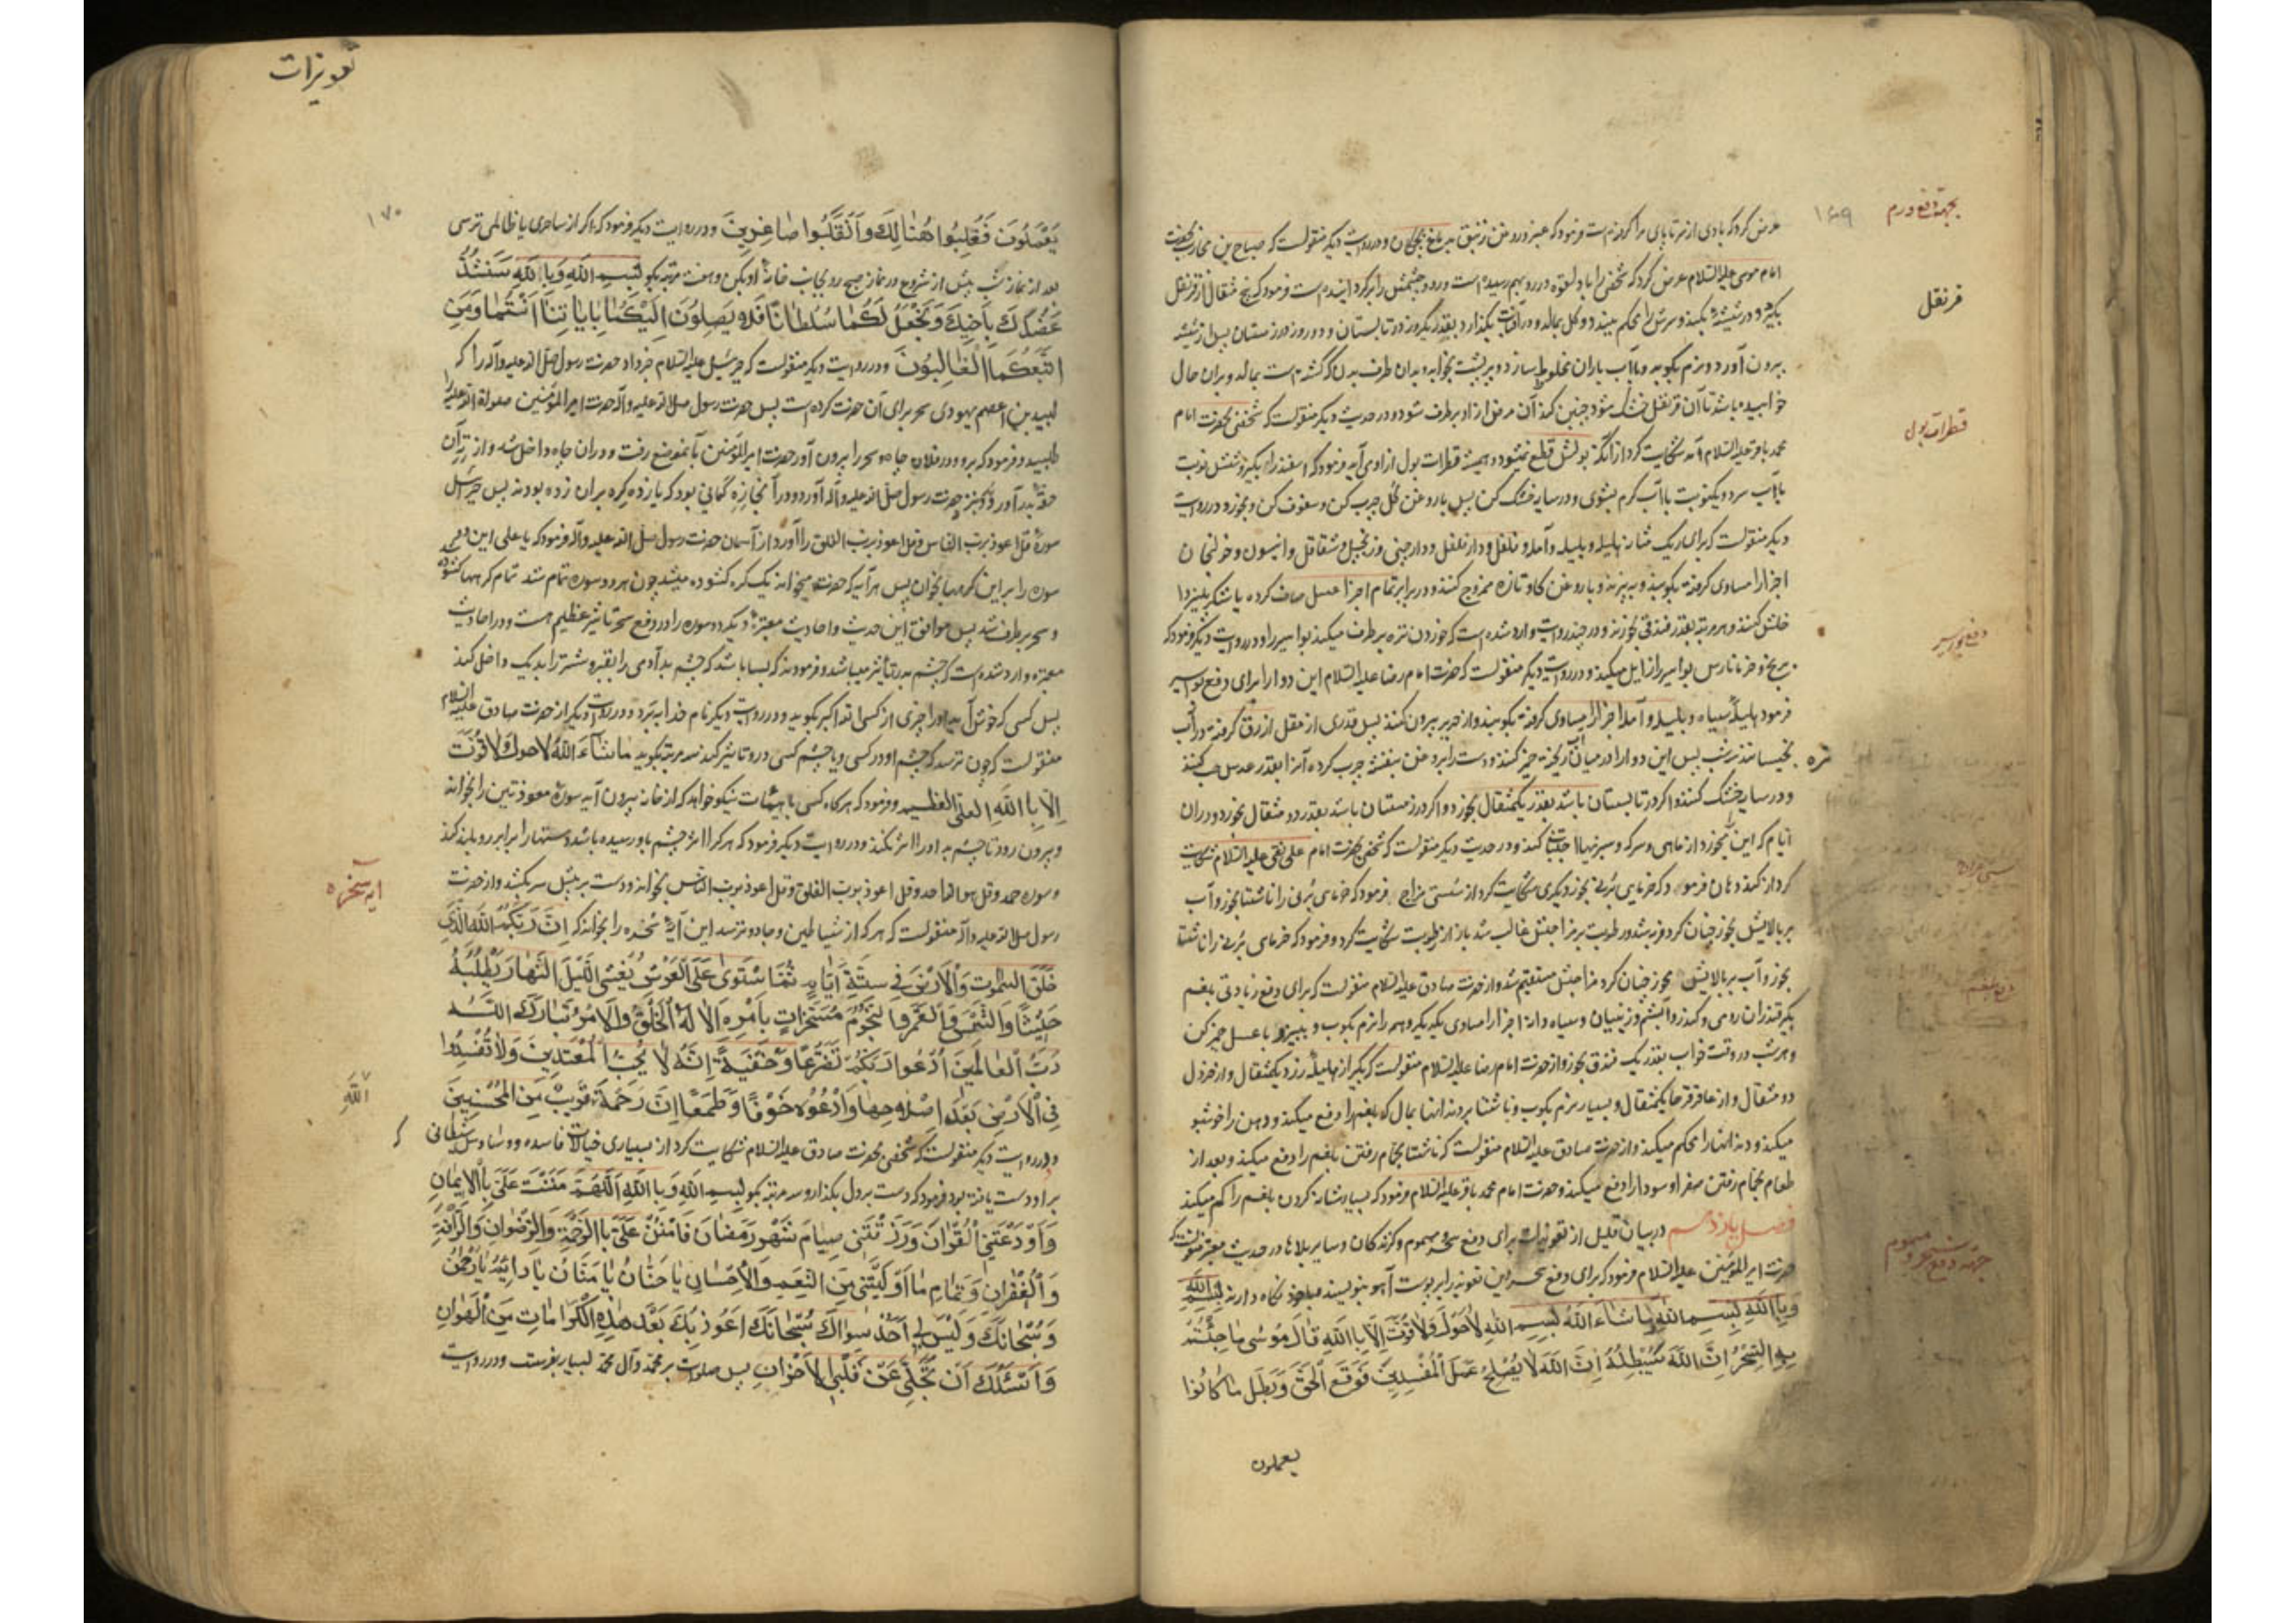 بجهة دفع ورم
۱۶۹
عرض کرد که بادی از سر تا پای مرا گرفته است فرمود که عنبر و روغن زنبق بر دماغ بچکان و در روایت دیگر منقولست که صباح بن محارب بحضرت
امام موسی علیه السلام عرض کرد که شخصی را باد لقوه در رو بهم رسیده است و رو و چشمش را برگردانیده است فرمود که پنج مثقال از قرنفل
قرنفل
بگیرد و در شیشه بکند و سرش را محکم ببندد و گل بمالد و در آفتاب بگذارد بقدر یکروز در تابستان و دو روز در زمستان پس از شیشه
بیرون آورد و نرم بکوبد و با آب باران مخلوط سازد و بر پشت بخوابد و بدان طرف بدن که گشته است بمالد و بران حال
خوابیده باشد تا آن قرنفل خشک شود چنین کند آن مرض از او برطرف شود و در حدیث دیگر منقولست که شخصی بحضرت امام
قطرات بول
محمد باقر علیه السلام شکایت کرد از آنکه بولش قطع نمیشود و همیشه قطرات بول از او می آید فرمود که اسفند را بگیر و شش نوبت
با آب سرد و یکنوبت با آب گرم بشوی و در سایه خشک کن پس با روغن گل چرب کن و سفوف کن و بخور و در روایت
دیگر منقولست که برای ریگ مثانه هلیله و بلیله و آمله و فلفل و دار فلفل و دارچینی و زنجبیل و شقاقل و انیسون و خولنجان
اجزا را مساوی گرفته بکوبند و به بیزند و با روغن گاو تازه ممزوج کنند و در برابر تمام اجزا عسل صاف کرده یا شکر پنیز دا
خلش کنند و هر مرتبه بقدر فندقی بخورند و در چند روایت وارد شده است که خوردن تره برطرف میکند بواسیر را و در روایت دیگر فرمود که
دفع بواسیر
برنج و خرما نارس بواسیر را زایل میکند و در روایت دیگر منقولست که حضرت امام رضا علیه السلام این دوا را برای دفع بواسیر
فرمود هلیله سیاه و بلیله و آمله اجزا را مساوی گرفته بکوبند و از حریر بیرون کنند پس قدری از مقل ازرق گرفته در آب
تره
بخیسانند سه شب پس این دوا را در میان آن ریخته خمیر کنند و دست را بروغن بنفشه چرب کرده آنرا بقدر عدس حب کنند
و در سایه خشک کنند و اگر در تابستان باشد بقدر یکمثقال بخورد و اگر در زمستان باشد بقدر دو مثقال بخورد و دران
ایام که این میخورد از ماهی و سرکه و سبزیها اجتناب کند و در حدیث دیگر منقولست که شخصی بحضرت امام علی نقی علیه السلام شکایت
کرد از گند دهان فرمود که خرمای برنی بخور دیگری شکایت کرد از سستی مزاج فرمود که خرمای برنی را ناشتا بخور و آب
بر بالایش بخور چنان کرد فربه شد و رطوبت بر مزاجش غالب شد باز از رطوبت شکایت کرد و فرمود که خرمای برنی را ناشتا
بخور و آب بر بالایش مخور چنان کرد مزاجش مستقیم شد و از حضرت صادق علیه السلام منقولست که برای دفع زیادتی بلغم
دفع بلغم
بگیر قندران رومی و کندر و آبشم و زنیان و سیاه دانه اجزا را مساوی یکدیگر و همه را نرم بکوب و ببیز و با عسل خمیر کن
و هر شب در وقت خواب بقدر یک فندق بخور و از حضرت امام رضا علیه السلام منقولست که بگیر از هلیله زرد یکمثقال و از خردل
دو مثقال و از عاقرقرحا یکمثقال و بسیار نرم بکوب و ناشتا بر دندانها بمال که بلغم را دفع میکند و دهن را خوشبو
میکند و دندانها را محکم میکند و از حضرت صادق علیه السلام منقولست که ناشتا بحمام رفتن بلغم را دفع میکند و بعد از
طعام بحمام رفتن صفرا و سودا را دفع میکند و حضرت امام محمد باقر علیه السلام فرمود که بسیار شانه کردن بلغم را کم میکند
فصل یازدهم در بیان قلیل از تعویذات برای دفع سحر و سموم و گزندگان و سایر بلاها در حدیث معتبر منقولست که
جهة دفع سحر و سموم
حضرت امیر المؤمنین علیه السلام فرمود که برای دفع سحر این تعویذ را بر پوست آهو بنویسند و با خود نگاه دارند بِسْمِ اللّٰهِ
وَبِاللّٰهِ بِسْمِ اللّٰهِ مٰاشٰاءَ اللّٰهُ بِسْمِ اللّٰهِ لاٰحَوْلَ وَلاٰقُوَّةَ اِلّاٰ بِاللّٰهِ قٰالَ مُوسٰی مٰاجِئْتُمْ
بِهِ السِّحْرُ اِنَّ اللّٰهَ سَیُبْطِلُهُ اِنَّ اللّٰهَ لاٰ یُصْلِحُ عَمَلَ الْمُفْسِدینَ فَوَقَعَ الْحَقُّ وَبَطَلَ مٰاکٰانُوا
یعملون
تعویذات
۱۷۰
یَعْمَلُونَ فَغُلِبُوا هُنٰالِكَ وَانْقَلَبُوا صٰاغِرینَ و در روایت دیگر فرمود که اگر از ساحری یا ظالمی ترسی
بعد از نماز شب پیش از شروع در نماز صبح رو بجانب خانه او بکن و هفت مرتبه بگو بِسْمِ اللّٰهِ وَبِاللّٰهِ سَنَشُدُّ
عَضُدَكَ بِاَخیكَ وَنَجْعَلُ لَكُمٰا سُلْطٰانًا فَلاٰ یَصِلُونَ اِلَیْكُمٰا بِاٰیٰاتِنٰا اَنْتُمٰا وَمَنِ
اتَّبَعَكُمَا الْغٰالِبُونَ و در روایت دیگر منقولست که جبرئیل علیه السلام خبر داد حضرت رسول صلی الله علیه و آله را که
لبید بن اعصم یهودی سحر برای آن حضرت کرده است پس حضرت رسول صلی الله علیه و آله حضرت امیر المؤمنین صلوات الله علیه را
طلبید و فرمود که برو و در فلان چاه سحر را بیرون آور حضرت امیر المؤمنین بآنموضع رفت و دران چاه داخل شد و از ته آن
حقه بدر آورد و بنزد حضرت رسول صلی الله علیه و آله آورد و درآنجا زه کمانی بود که یازده گره بران زده بودند پس جبرئیل
سوره قل اعوذ برب الناس و قل اعوذ برب الفلق را آورد از آسمان حضرت رسول صلی الله علیه و آله فرمود که یا علی این دو
سوره را بر این گرهها بخوان پس هر آیه که حضرت میخواند یک گره کشوده میشد چون هر دو سوره تمام شد تمام گرهها کشوده
و سحر برطرف شد پس موافق این حدیث و احادیث معتبره دیگر دو سوره را در دفع سحر تاثیر عظیم هست و در احادیث
معتبره وارد شده است که چشم بد را تأثیر میباشد و فرمودند که بسا باشد که چشم بد آدمی را بقبر و شتر را بدیک داخل کند
پس کسی که خوش آید او را چیزی از کسی الله اکبر بگوید و در روایت دیگر نام خدا ببرد و در روایت دیگر از حضرت صادق علیه السلام
منقولست که چون ترسد که چشم او در کسی و یا چشم کسی در و تاثیر کند سه مرتبه بگوید مٰاشٰآءَ اللّٰهُ لاٰحَوْلَ وَلاٰقُوَّةَ
اِلّاٰ بِاللّٰهِ الْعَلِیِّ الْعَظیمِ و فرمود که هرگاه کسی با هیئات نیکو خواهد که از خانه بیرون آید سوره معوذتین را بخواند
و بیرون رود تا چشم بد او را اثر نکند و در روایت دیگر فرمود که هر که را اثر چشم باو رسیده باشد دستها را برابر رو بلند کند
و سوره حمد و قل هو الله احد و قل اعوذ برب الفلق و قل اعوذ برب الناس بخواند و دست بر پیش سر بکشد و از حضرت
آیه سخره
رسول صلی الله علیه و آله منقولست که هر که از شیاطین و جادو ترسد این آیه سخره را بخواند که اِنَّ رَبَّكُمُ اللّٰهُ الَّذی
خَلَقَ السَّمٰوٰتِ وَالْاَرْضَ فی سِتَّةِ اَیّٰامٍ ثُمَّ اسْتَوٰی عَلَی الْعَرْشِ یُغْشِی اللَّیْلَ النَّهٰارَ یَطْلُبُهُ
حَثیثًا وَالشَّمْسَ وَالْقَمَرَ وَالنُّجُومَ مُسَخَّرٰاتٍ بِاَمْرِهِ اَلاٰ لَهُ الْخَلْقُ وَالْاَمْرُ تَبٰارَكَ اللّٰهُ
رَبُّ الْعٰالَمینَ اُدْعُوا رَبَّكُمْ تَضَرُّعًا وَخُفْیَةً اِنَّهُ لاٰ یُحِبُّ الْمُعْتَدینَ وَلاٰتُفْسِدُوا
فِی الْاَرْضِ بَعْدَ اِصْلاٰحِهٰا وَادْعُوهُ خَوْفًا وَطَمَعًا اِنَّ رَحْمَةَ قَریبٌ مِنَ الْمُحْسِنینَ
اللّٰهِ
و در روایت دیگر منقولست که شخصی بحضرت صادق علیه السلام شکایت کرد از بسیاری خیالات فاسده و وساوس شیطانی که
براو دست یافته بود فرمود که دست بر دل بگذار و سه مرتبه بگو بِسْمِ اللّٰهِ وَبِاللّٰهِ اَللّٰهُمَّ مَنَنْتَ عَلَیَّ بِالْایمٰانِ
وَاَوْدَعْتَنِی الْقُرْاٰنَ وَرَزَقْتَنی صِیٰامَ شَهْرِ رَمَضٰانَ فَامْنُنْ عَلَیَّ بِالرَّحْمَةِ وَالرِّضْوٰانِ وَالرَّأْفَةِ
وَالْغُفْرٰانِ وَتَمٰامِ مٰا اَوْلَیْتَنی مِنَ النِّعَمِ وَالْاِحْسٰانِ یٰا حَنّٰانُ یٰا مَنّٰانُ یٰا دٰائِمُ یٰا رَحْمٰنُ
وَسُبْحٰانَكَ وَلَیْسَ لی اَحَدٌ سِوٰاكَ سُبْحٰانَكَ اَعُوذُ بِكَ بَعْدَ هٰذِهِ الْكَرٰامٰاتِ مِنَ الْهَوٰانِ
وَاَسْئَلُكَ اَنْ تُجَلِّیَ عَنْ قَلْبِی الْاَحْزٰانَ پس صلوات بر محمد و آل محمد بسیار بفرست و در روایت